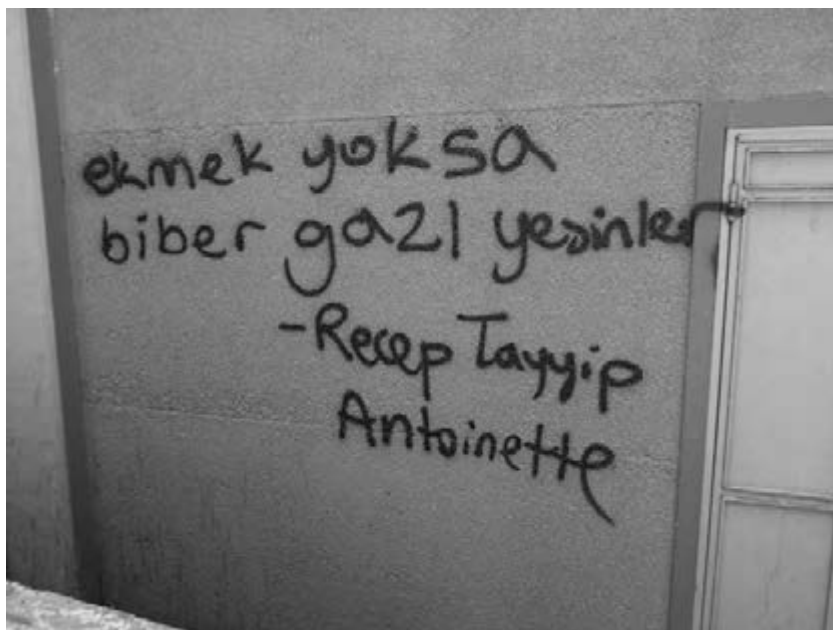 ekmek yoksa
biber gazı yesinler
-Recep Tayyip
Antoinette